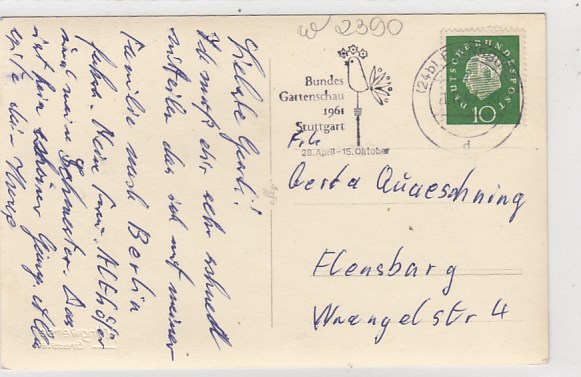 W 2390
Liebste Gerti!
Ich muß dir sehr schnell
mitteilen das ich mit meiner
Familie nach Berlin
fahre. Mein Frau.
und meine Schwester. Das
ist kein schöner Gang. Alles
gute dein
Bundes
Gartenschau
1961
Stuttgart
28. April - 15. Oktober
(24b) F
d
DEUTSCHE BUNDESPOST
10
Frl.
Gerta Quaeschning
Flensburg
Wrangelstr 4